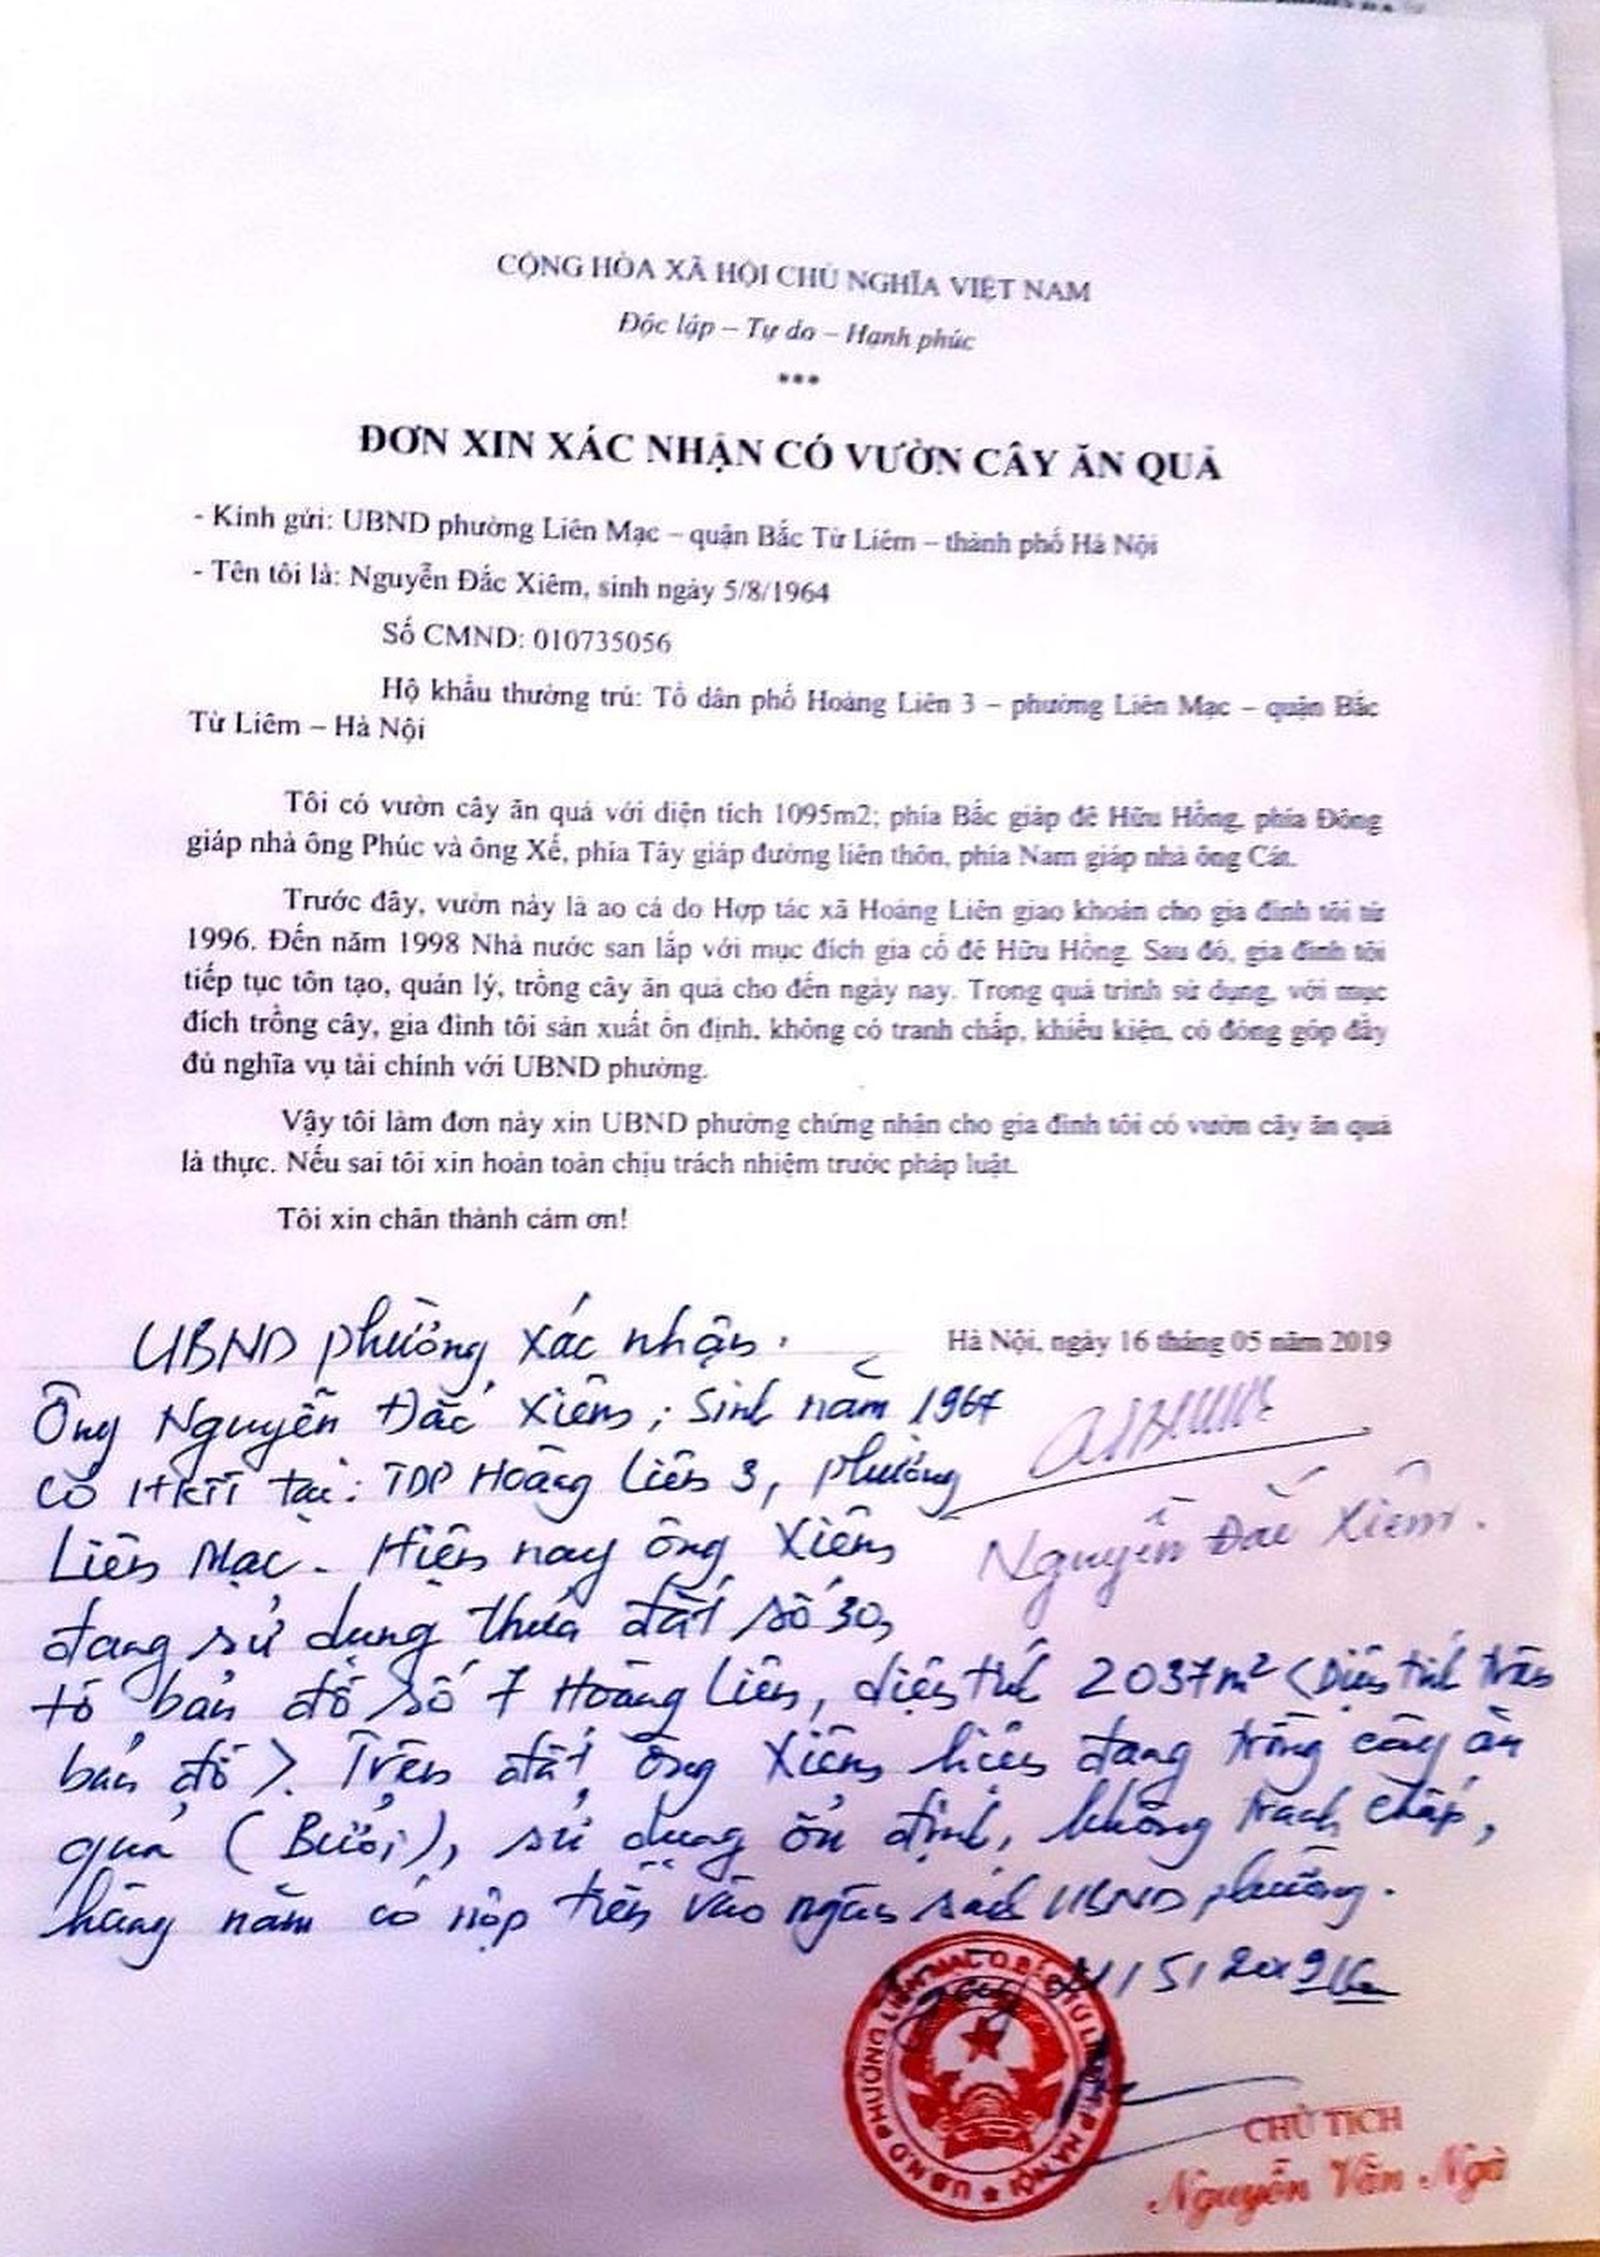 CỘNG HÒA XÃ HỘI CHỦ NGHĨA VIỆT NAM
Độc lập – Tự do – Hạnh phúc
***
ĐƠN XIN XÁC NHẬN CÓ VƯỜN CÂY ĂN QUẢ
- Kính gửi: UBND phường Liên Mạc – quận Bắc Từ Liêm – thành phố Hà Nội
- Tên tôi là: Nguyễn Đắc Xiêm, sinh ngày 5/8/1964
Số CMND: 010735056
Hộ khẩu thường trú: Tổ dân phố Hoàng Liên 3 – phường Liên Mạc – quận Bắc
Từ Liêm – Hà Nội
Tôi có vườn cây ăn quả với diện tích 1095m2; phía Bắc giáp đê Hữu Hồng, phía Đông
giáp nhà ông Phúc và ông Xế, phía Tây giáp đường liên thôn, phía Nam giáp nhà ông Cát.
Trước đây, vườn này là ao cá do Hợp tác xã Hoàng Liên giao khoán cho gia đình tôi từ
1996. Đến năm 1998 Nhà nước san lấp với mục đích gia cố đê Hữu Hồng. Sau đó, gia đình tôi
tiếp tục tôn tạo, quản lý, trồng cây ăn quả cho đến ngày nay. Trong quá trình sử dụng, với mục
đích trồng cây, gia đình tôi sản xuất ổn định, không có tranh chấp, khiếu kiện, có đóng góp đầy
đủ nghĩa vụ tài chính với UBND phường.
Vậy tôi làm đơn này xin UBND phường chứng nhận cho gia đình tôi có vườn cây ăn quả
là thực. Nếu sai tôi xin hoàn toàn chịu trách nhiệm trước pháp luật.
Tôi xin chân thành cảm ơn!
Hà Nội, ngày 16 tháng 05 năm 2019
UBND phường xác nhận.
Ông Nguyễn Đắc Xiêm; Sinh năm 1964
có HKTT tại: TDP Hoàng Liên 3, phường
Liên Mạc. Hiện nay ông Xiêm
Nguyễn Đắc Xiêm.
đang sử dụng thửa đất số 30,
tờ bản đồ số 7 Hoàng Liên, diện tích 2037m² (Diện tích trên
bản đồ). Trên đất ông Xiêm hiện đang trồng cây ăn
quả (Bưởi), sử dụng ổn định, không tranh chấp,
hàng năm có nộp tiền vào ngân sách UBND phường.
ngày /5/2019
U.B.N.D PHƯỜNG LIÊN MẠC Q.BẮC TỪ LIÊM T.P HÀ NỘI
CHỦ TỊCH
Nguyễn Văn Ngà